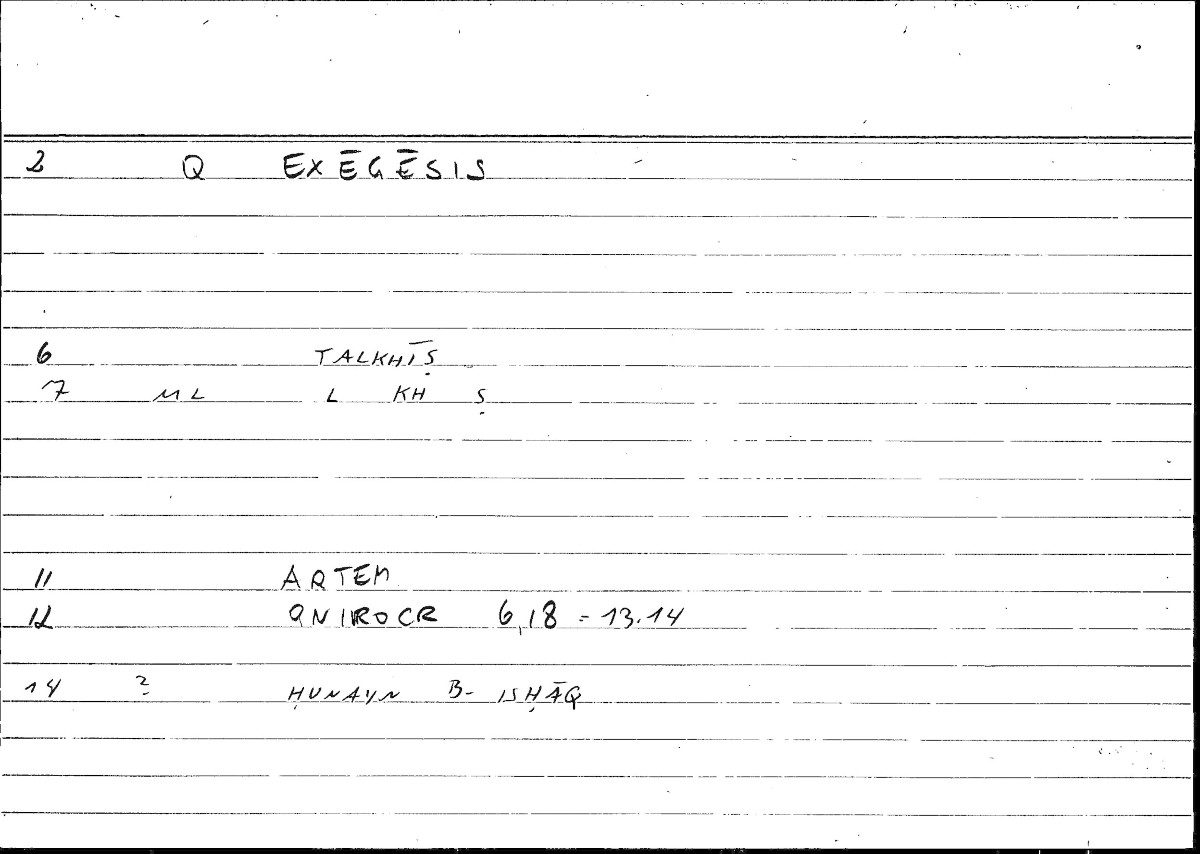 2 Q EXĒGĒSIS
6 TALKHĪṢ
7 ML L KH Ṣ
11 ARTEM
12 ONIROCR 6,18 = 13.14
14 2 ḤUNAYN B- ISḤĀQ